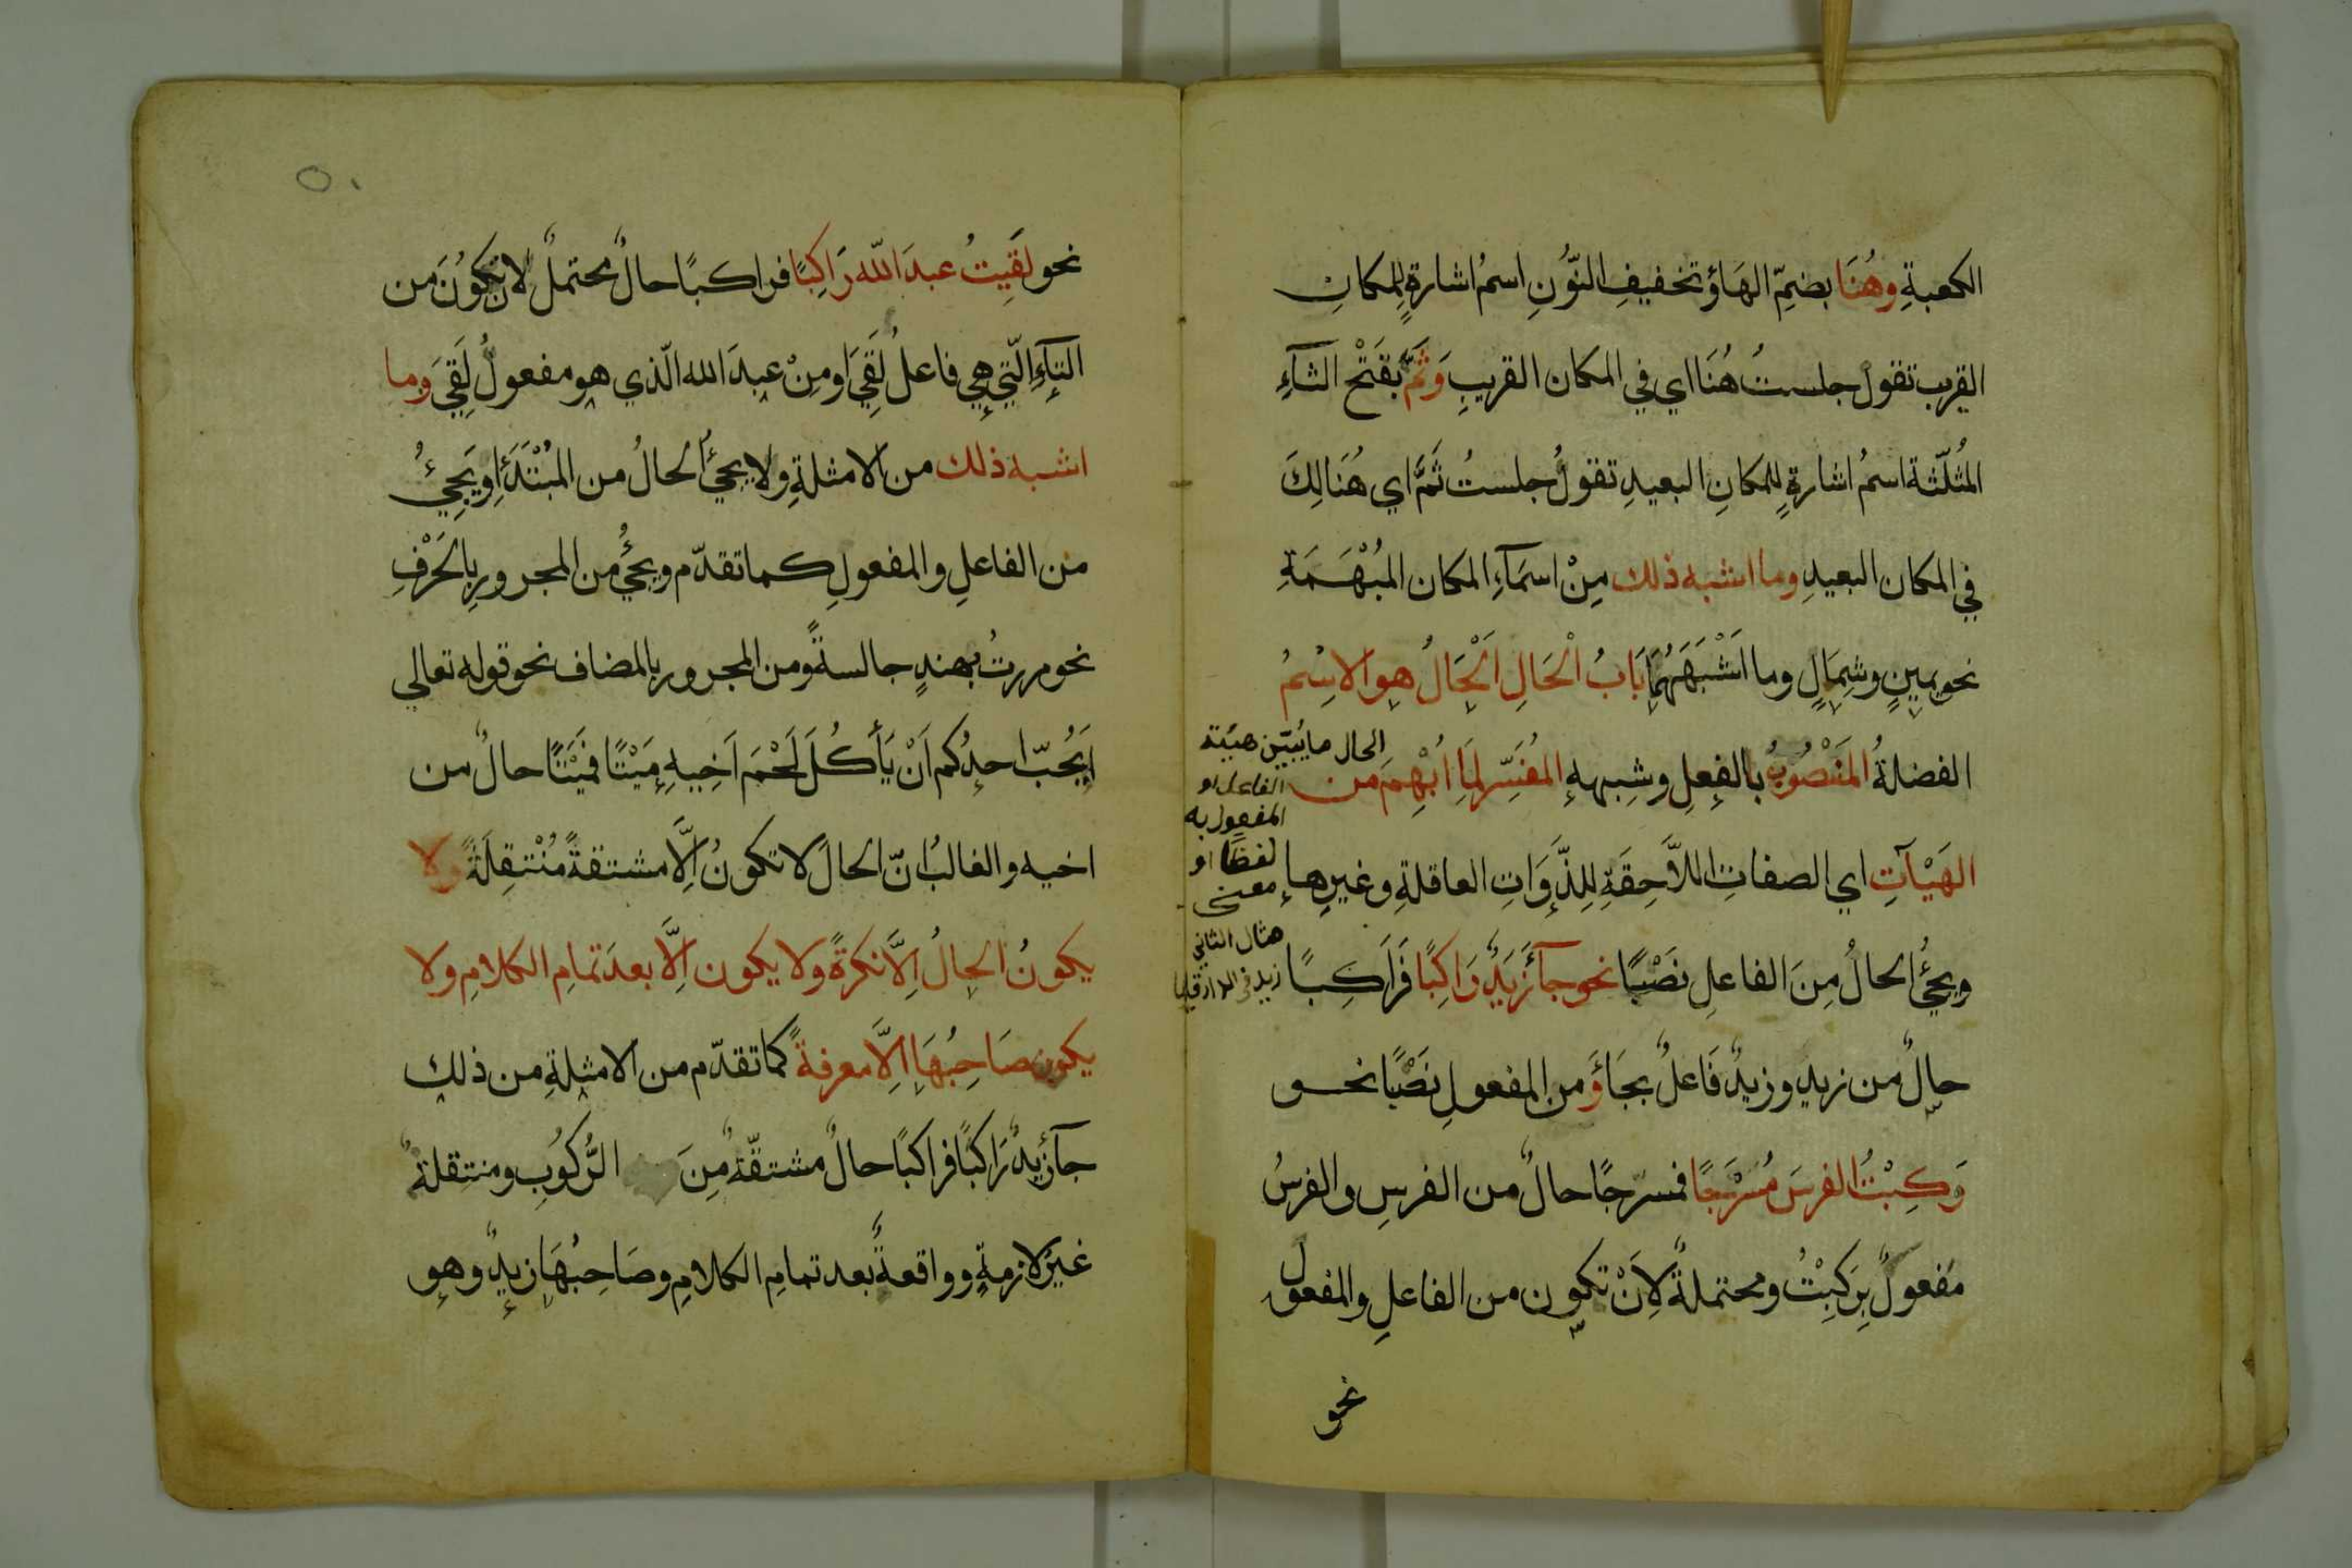 الكعبةِ وهُنَا بضمِّ الهَاؤ تخفيفِ النّوُنِ اسمُ اشارةٍ لِلمكانِ
القريب تقولُ جلستُ هُنَا اي في المكان القريبِ وَثَمَّ بفَتْحِ الثآءِ
المُثلّثة اسمُ اشارةٍ لِلمكانِ البعيدِ تقولُ جلستُ ثَمَّ اي هُنَالِكَ
في المكان البعيدِ وما اشبه ذلك مِنْ اسمَآءِ المكان المُبْهَمَةِ
نحو يمينٍ وشِمَالٍ وما اَشْبَهَهُمَا بَابُ الْحَالِ اَلْحَالُ هو الاِسْمُ
الفضلةُ المَنْصُوبُ بالفِعلِ وشِبههِ المُفَسِّر لِمَا اُبْهِمَ من
الهَيْآتِ اي الصفاتِ اللاَّحِقَةِ لِلذَّوَاتِ العاقلةِ وغيرِها
ويجئُ الحالُ مِنَ الفاعلِ نَصْبًا نحو جآءَ زَيدٌ رَاكِبًا فَرَاكِبًا
حالٌ من زيدٍ وزيدٌ فَاعلٌ بجَاءَ ومن المفعولِ نَصْبًا نحو
رَكِبْتُ الفرسَ مُسْرَجًا فمسرّجًا حالٌ من الفرسِ والفرسُ
مفعولٌ بِرَكِبْتُ ومحتملةٌ لِاَنْ تكون من الفاعلِ والمفعول
نحو
الحال ما يُبيّن هيئة
الفاعل او
المفعول به
لفظًا او
معنى
مثال الثاني
زيد في الدار قايما
٥٠
نحو لَقِيتُ عبدَ اللّه رَاكِبًا فراكبًا حالٌ محتملٌ لان تكُونَ من
التآءِ الّتي هي فاعلُ لَقِيَ اومِنْ عبدَ الله الّذي هو مفعولُ لَقِيَ وما
اشبه ذلك من الامثلةِ ولا يجئُ الحالُ من المُبْتَدَإِ ويَجِئُ
من الفاعلِ والمفعولِ كما تقدّم ويجئُ من المجرورِ بالحَرْفِ
نحو مررتُ بهندٍ جالسةً ومن المجرور بالمضاف نحو قوله تعالي
اَيُحُبّ احدُكم اَنْ يَأكُلَ لَحْمَ اَخِيهِ مَيْتًا فمَيْتًا حالٌ من
اخيه والغالبُ انّ الحالَ لا تكونُ اِلَّا مشتقةً مُنْتقِلَةً ولا
يكونُ الحالُ اِلَّا نكرةً ولا يكون اِلَّا بعدَ تمامِ الكلامِ ولا
يكون صَاحِبُهَا اِلَّا معرفةً كما تقدّم من الامثلةِ من ذلك
جآءَ زيدٌ رَاكبًا فراكبًا حالٌ مشتقّةٌ مِنَ الرُّكُوبِ ومنتقلةٌ
غيرُ لازمةٍ وواقعةٌ بعد تمامِ الكلامِ وصَاحِبُهَا زيدٌ وهو